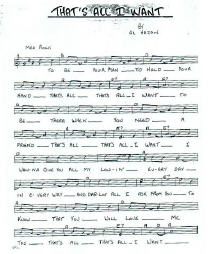 THAT'S ALL I WANT
BY
AL HAZAN
MED ROCK
TO BE YOUR MAN TO HOLD YOUR
HAND THAT'S ALL THAT'S ALL I WANT TO
BE THERE WHEN YOU NEED A
FRIEND THAT'S ALL THAT'S ALL I WANT I
WANNA GIVE YOU ALL MY LOV-IN' EV'RY DAY
IN E'VRY WAY AND DARLIN' ALL I ASK FROM YOU TO
KNOW THAT YOU WILL LOVE ME
TOO THAT'S ALL THAT'S ALL I WANT